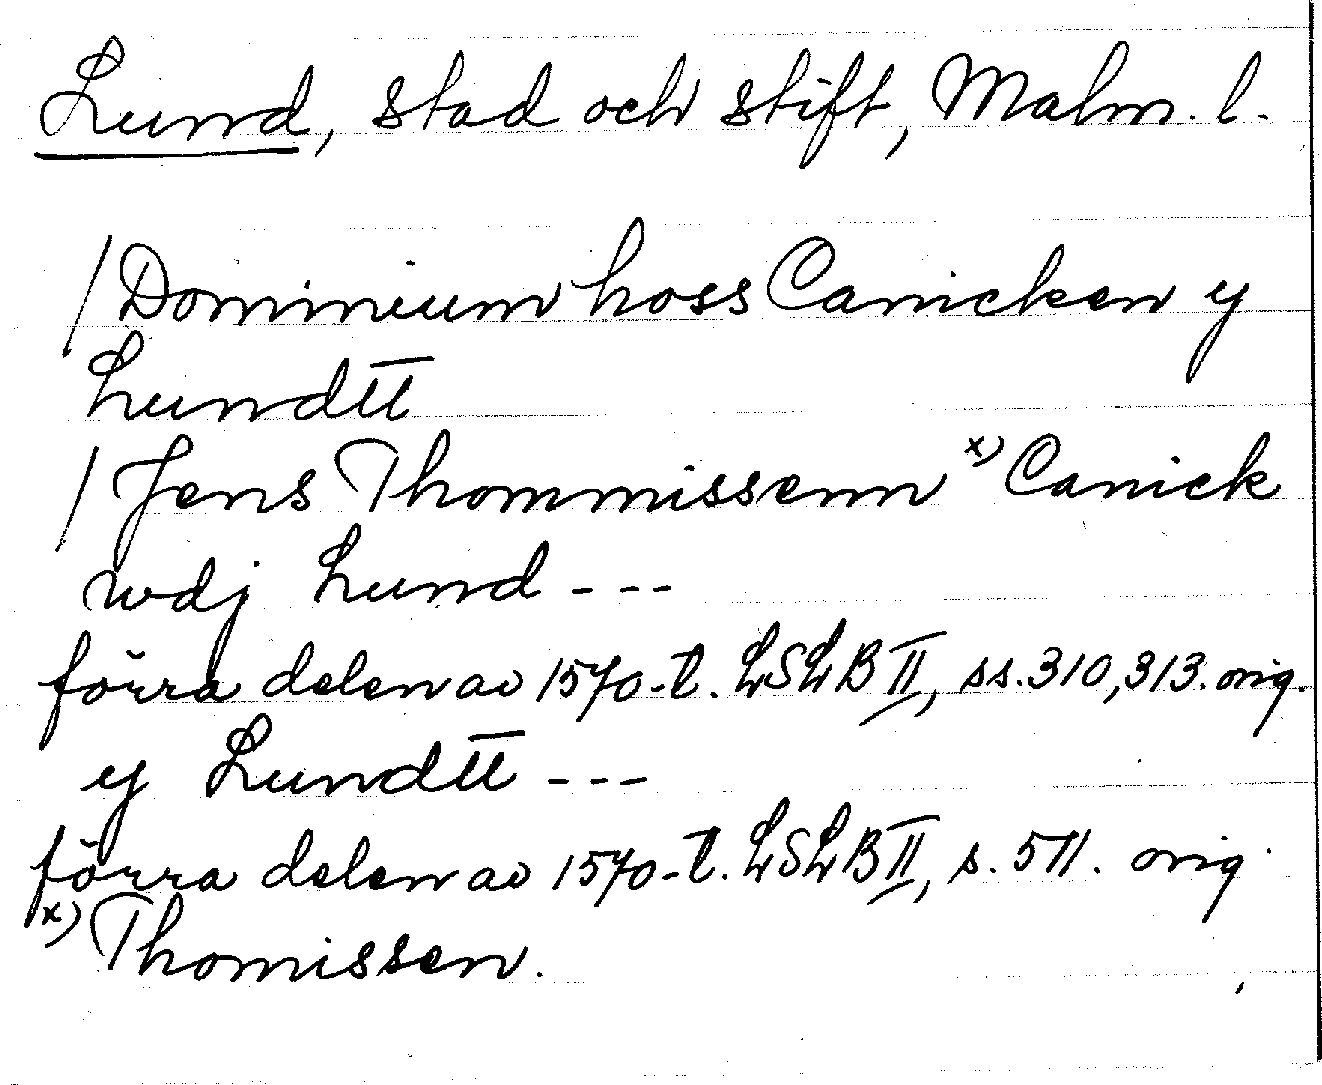 Lund, stad och stift, Malm. l.
/ Dominium hoss Canicken y
Lundtt
/ Jens Thommissenn x) Canick
wdj Lund ---
förra delen av 1570-t. LSLB II, ss. 310, 313. orig.
y Lundtt ---
förra delen av 1570-t. LSLB II, s. 511. orig.
x) Thomissen.